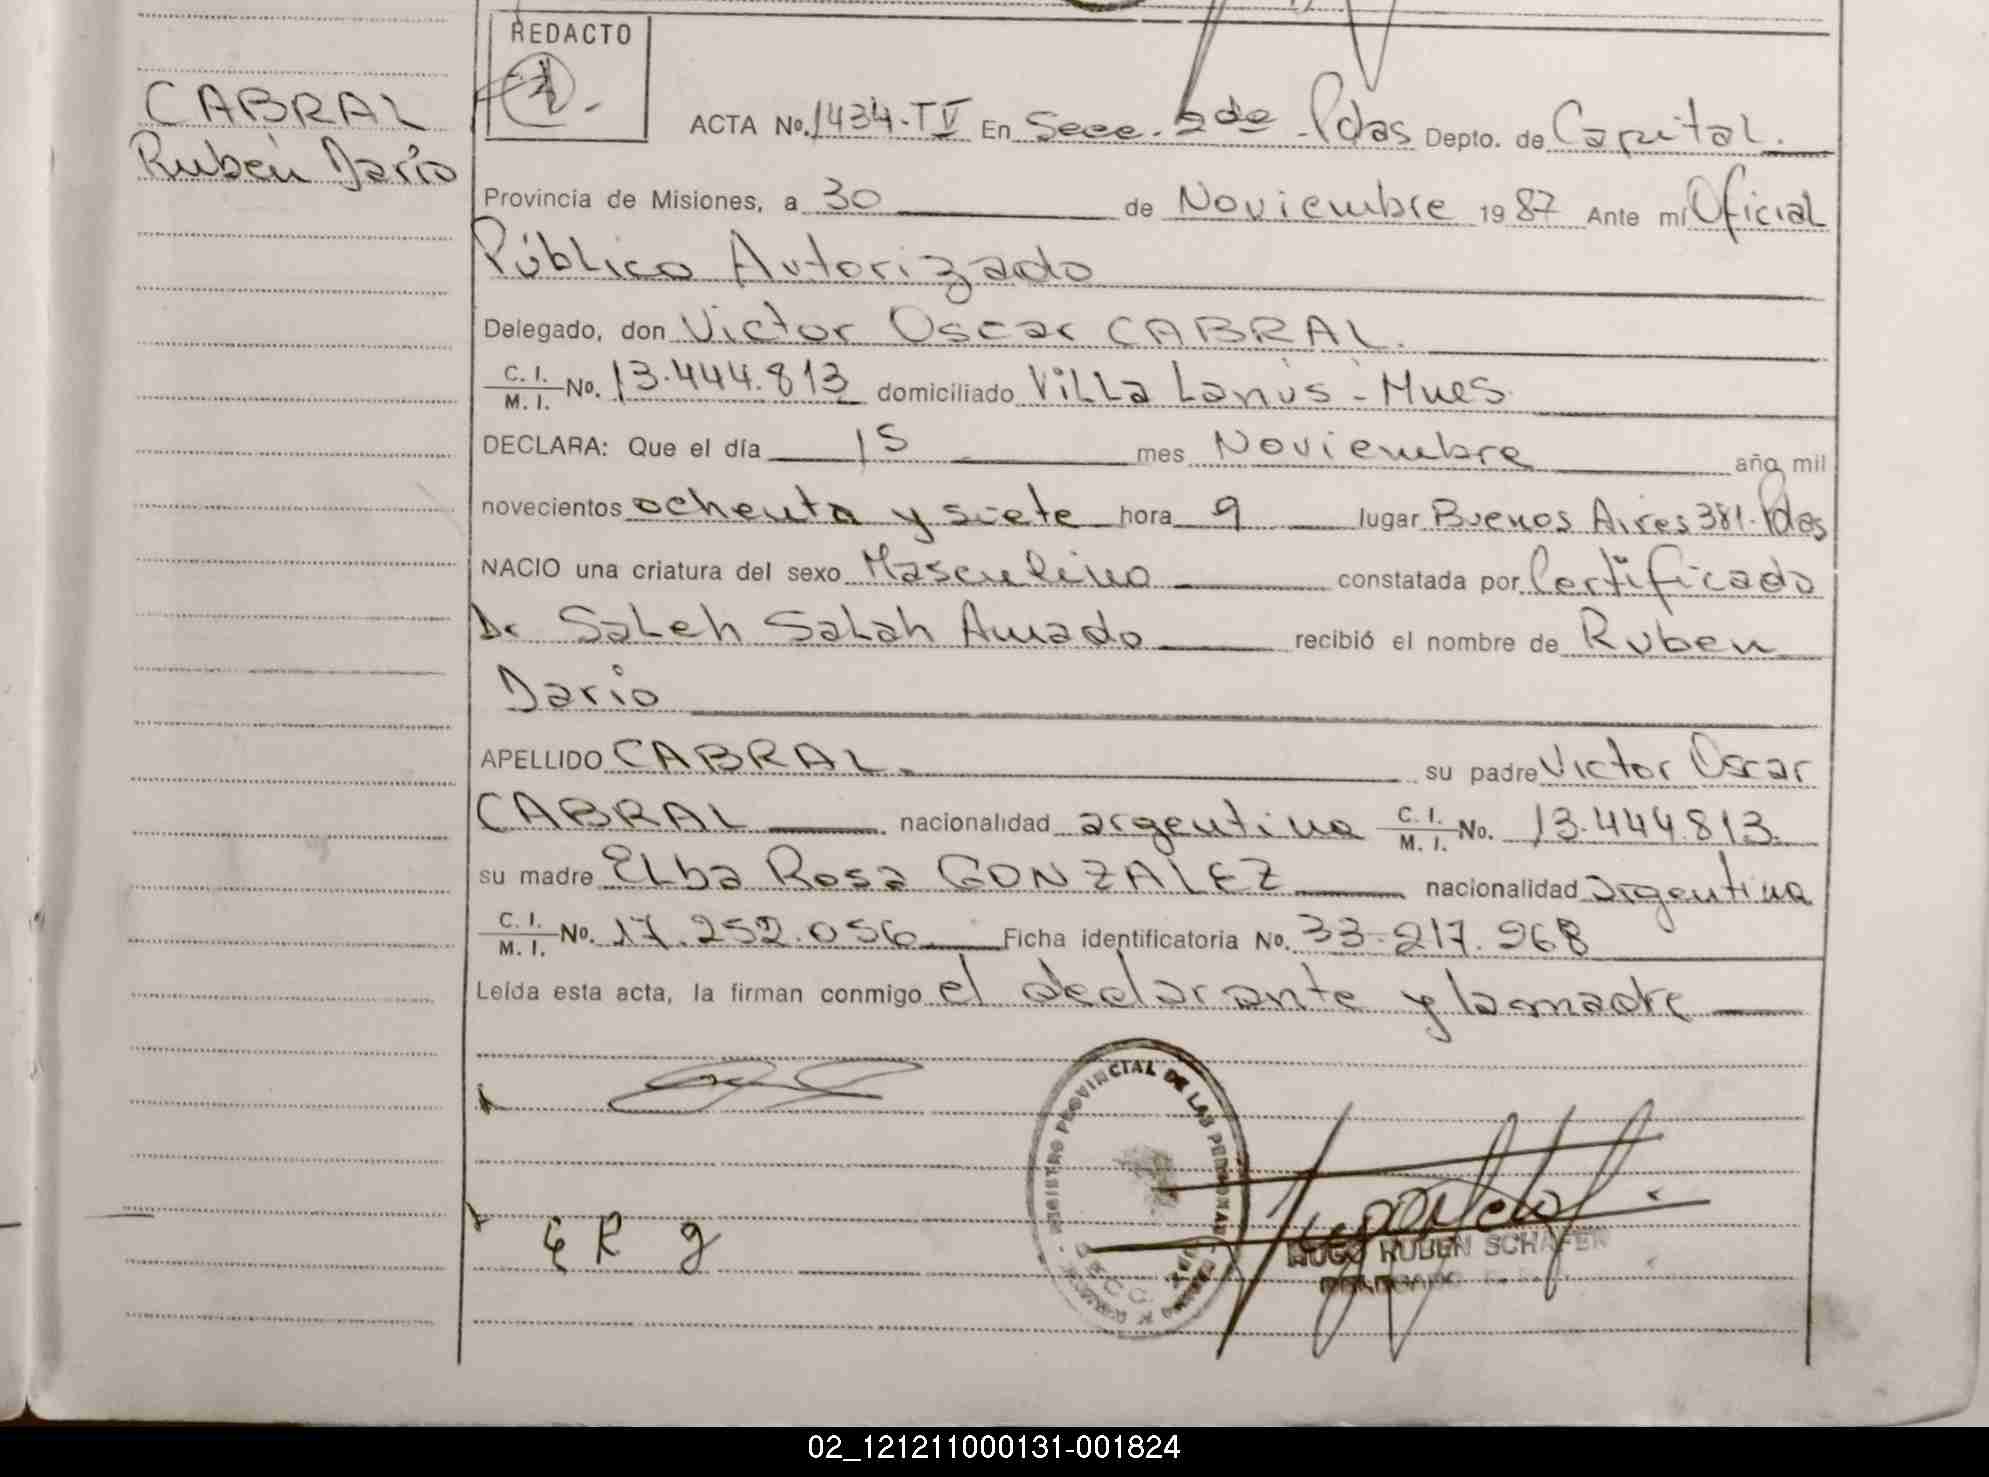 REDACTO
CABRAL
Ruben Darío
ACTA No. 1434-TV En Secc. 2da - Pdas Depto. de Capital.
Provincia de Misiones, a 30 de Noviembre 1987 Ante mí Oficial
Público Autorizado
Delegado, don Victor Oscar CABRAL.
C. I.
M. I. No. 13.444.813 domiciliado Villa Lanús - Mnes
DECLARA: Que el día 15 mes Noviembre año mil
novecientos ochenta y siete hora 9 lugar Buenos Aires 381. Pdas
NACIO una criatura del sexo Masculino constatada por Certificado
Dr Saleh Salah Amado recibió el nombre de Ruben
Dario
APELLIDO CABRAL. su padre Victor Oscar
CABRAL nacionalidad argentina C. I. M. I. No. 13.444.813.
su madre Elba Rosa GONZALEZ nacionalidad argentina
C. I.
M. I. No. 17.252.056 Ficha identificatoria No. 33.217.968
Leída esta acta, la firman conmigo el declarante y la madre
REGISTRO PROVINCIAL DE LAS PERSONAS
E R g
HUGO RUBEN SCHAFER
DELEGADO
02_121211000131-001824